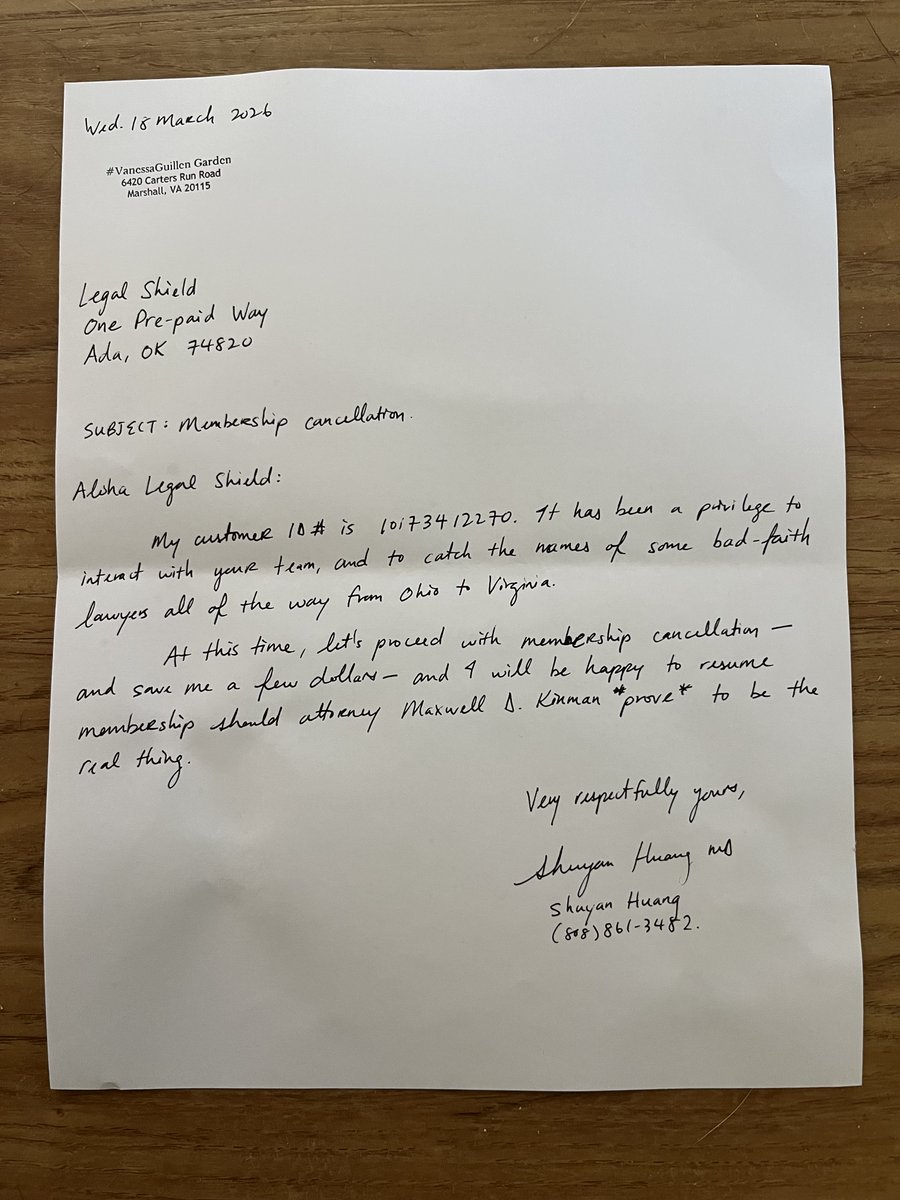 Wed. 18 March 2026
#VanessaGuillen Garden
6420 Carters Run Road
Marshall, VA 20115
Legal Shield
One Pre-paid Way
Ada, OK 74820
SUBJECT: Membership cancellation.
Aloha Legal Shield:
My customer ID# is 10173412270. It has been a privilege to
interact with your team, and to catch the names of some bad-faith
lawyers all of the way from Ohio to Virginia.
At this time, let's proceed with membership cancellation —
and save me a few dollars — and I will be happy to resume
membership should attorney Maxwell D. Kinman *prove* to be the
real thing.
Very respectfully yours,
Shuyan Huang MD
Shuyan Huang
(808)861-3482.